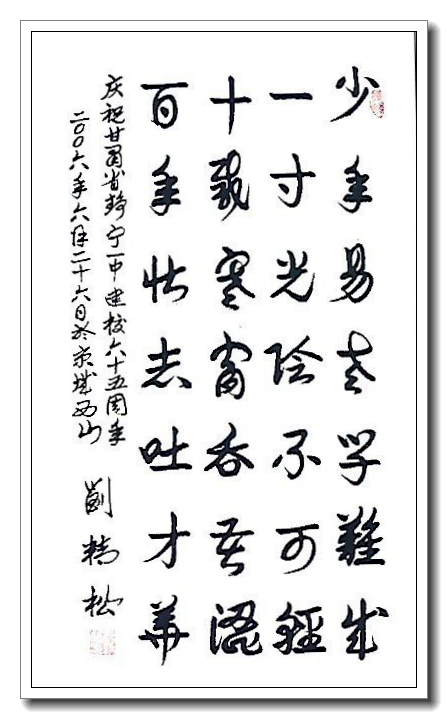 少年易老学難成
一寸光陰不可輕
十載寒窗吞苦澀
百年壮志吐才華
庆祝甘肅省静宁一中建校六十五周年
二〇〇六年六月二十六日於京城西山
劉精松